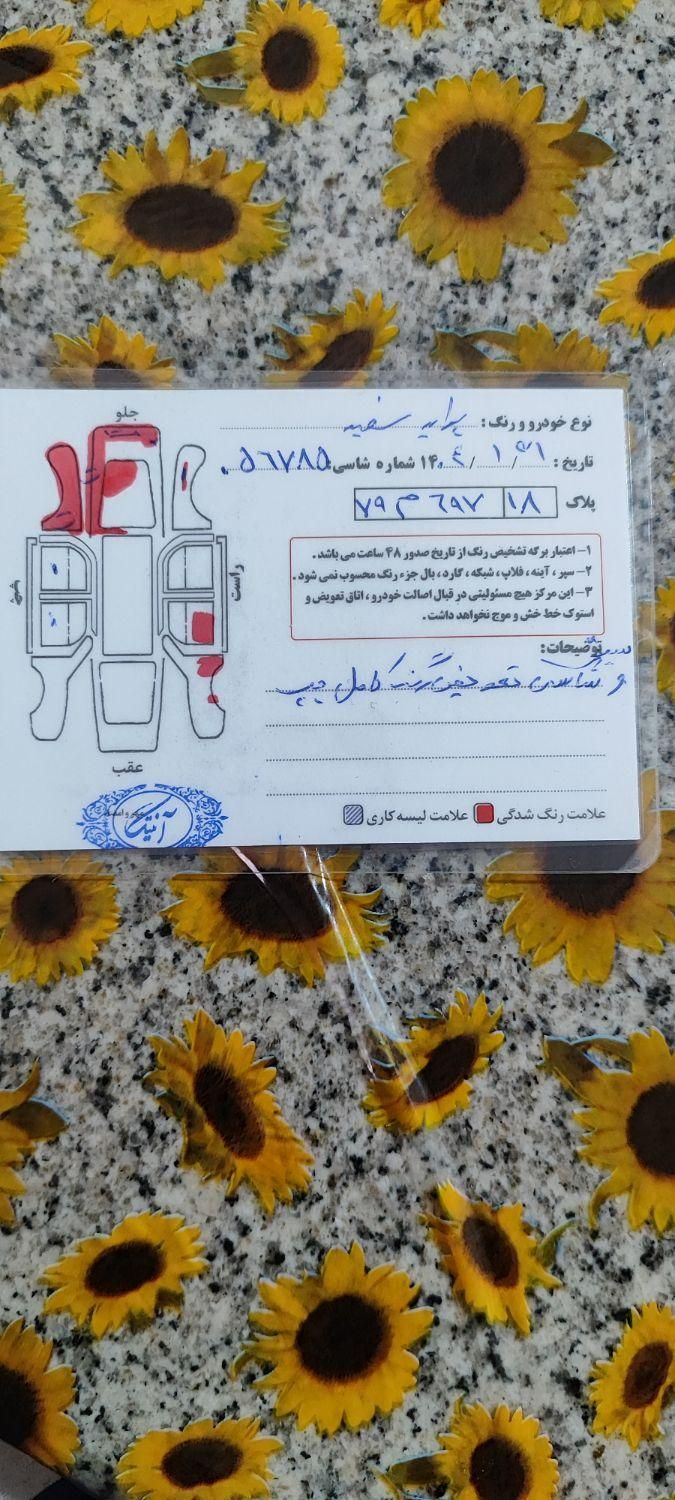 جلو
نوع خودرو و رنگ : پراید سفید
تاریخ : ۱۴۰۴/۱/۳۱ شماره شاسی: ۰۵۶۷۸۵
پلاک ۱۸ ۶۹۷ م ۷۹
راست
چپ
۱- اعتبار برگه تشخیص رنگ از تاریخ صدور ۴۸ ساعت می باشد .
۲- سپر ، آینه ، فلاپ ، شبکه ، گارد ، بال جزء رنگ محسوب نمی شود .
۳- این مرکز هیچ مسئولیتی در قبال اصالت خودرو ، اتاق تعویض و
استوک خط خش و موج نخواهد داشت .
توضیحات:
و شاسی کامل چپ
عقب
آنتیک
علامت رنگ شدگی علامت لیسه کاری